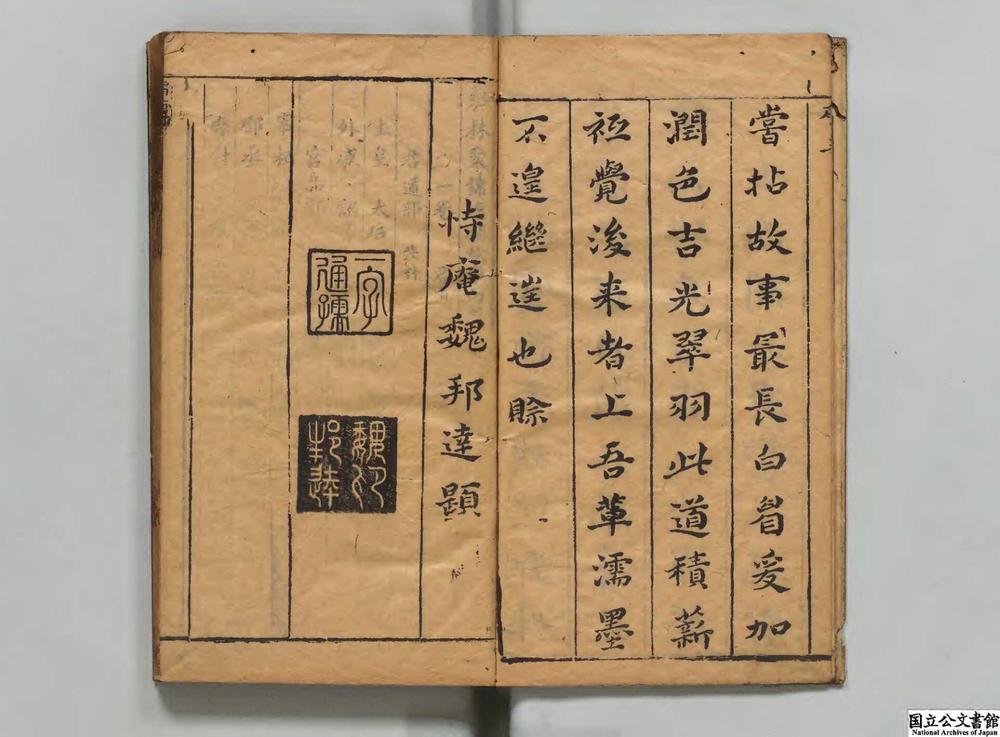 嘗拈故事最長白眉爰加
潤色吉光翠羽此道積薪
祗覺後来者上吾輩濡墨
不遑繼述也賖
恃庵魏邦達題
一字通孺
魏邦達印
国立公文書館
National Archives of Japan